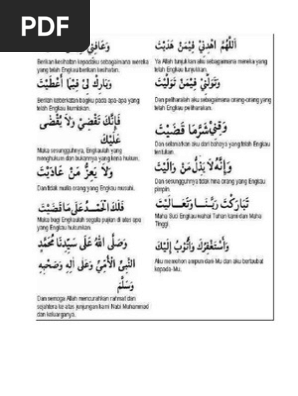 PDF
اَللّٰهُمَّ اهْدِنِيْ فِيْمَنْ هَدَيْتَ
Ya Allah tunjukkan aku sebagaimana mereka
yang telah Engkau tunjukkan.
وَعَافِنِيْ
Berikan kesihatan kepadaku sebagaimana mereka
yang telah Engkau berikan kesihatan.
وَتَوَلَّنِيْ فِيْمَنْ تَوَلَّيْتَ
Dan peliharalah aku sebagaimana orang-orang yang
telah Engkau peliharakan.
وَبَارِكْ لِيْ فِيْمَا أَعْطَيْتَ
Berilah keberkatan bagiku pada apa-apa yang
telah Engkau kurniakan.
وَقِنِيْ شَرَّمَا قَضَيْتَ
Dan selamatkan aku dari bahaya yang telah Engkau
tentukan.
فَإِنَّكَ تَقْضِيْ وَلَا يُقْضَى
عَلَيْكَ
Maka sesungguhnya, Engkaulah yang
menghukum dan bukannya yang kena hukum.
وَإِنَّهُ لَا يَذِلُّ مَنْ وَالَيْتَ
Dan sesungguhnya tidak hina orang yang Engkau
pimpin.
وَلَا يَعِزُّ مَنْ عَادَيْتَ
Dan tidak mulia orang yang Engkau musuhi.
تَبَارَكْتَ رَبَّنَا وَتَعَالَيْتَ
Maha Suci Engkau wahai Tuhan kami dan Maha
Tinggi.
فَلَكَ الْحَمْدُ عَلَى مَا قَضَيْتَ
Maka bagi Engkaulah segala pujian di atas apa
yang Engkau hukumkan.
وَأَسْتَغْفِرُكَ وَأَتُوْبُ إِلَيْكَ
Aku memohon ampun dari-Mu dan aku bertaubat
kepada-Mu.
وَصَلَّى اللهُ عَلَى سَيِّدِنَا مُحَمَّدٍ
النَّبِيِّ الْأُمِّيِّ وَعَلَى آلِهِ وَصَحْبِهِ
وَسَلَّمَ
Dan semoga Allah mencurahkan rahmat dan
sejahtera ke atas junjungan kami Nabi Muhammad
dan keluarganya.